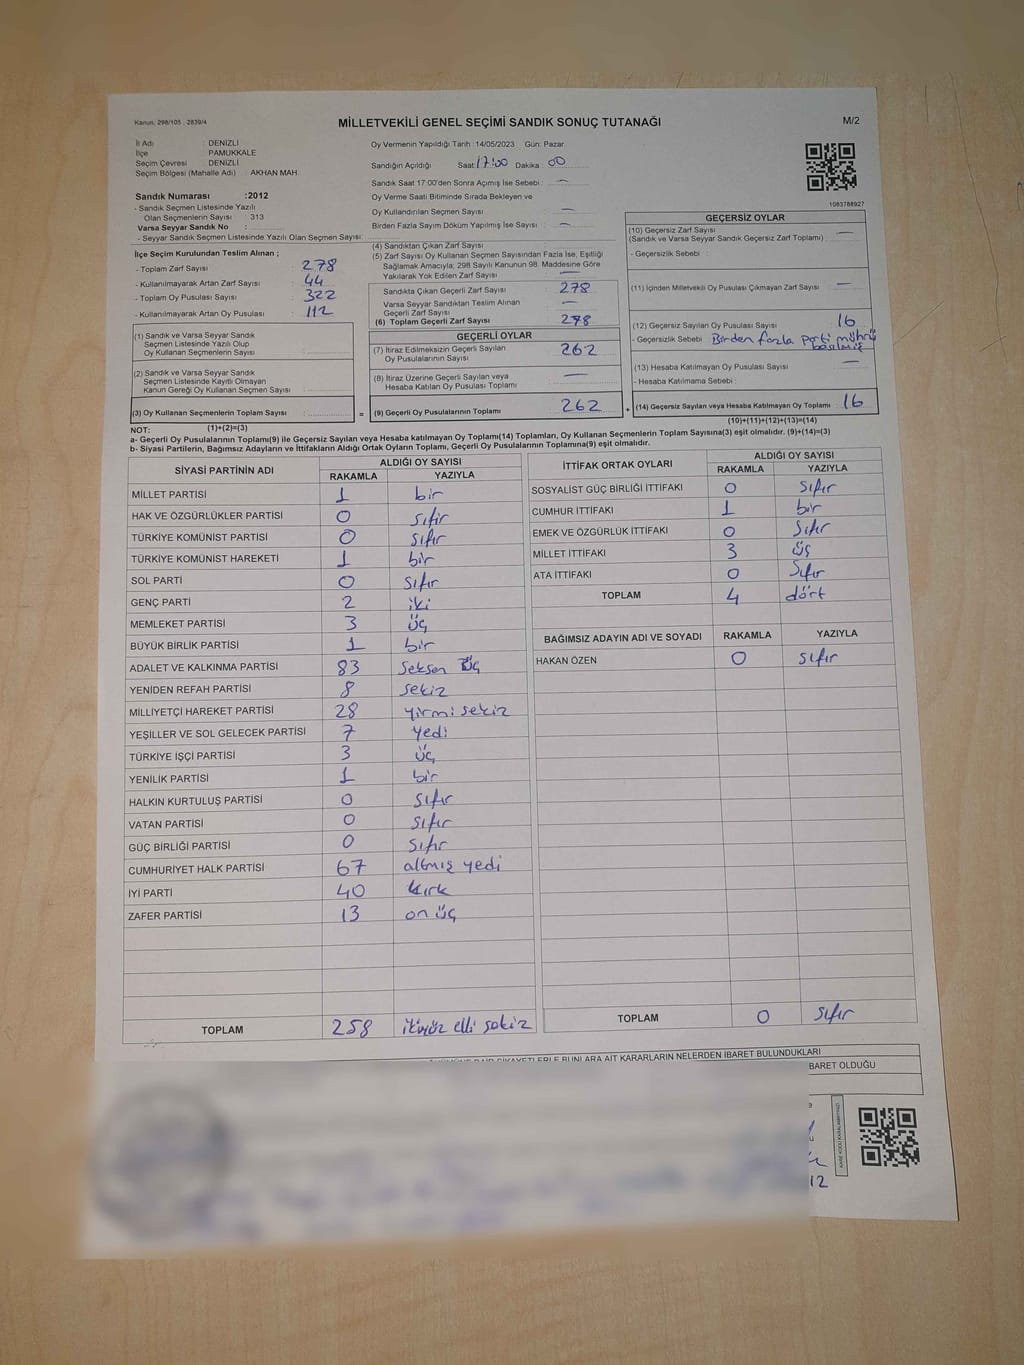 Kanun: 298/105 , 2839/4
MİLLETVEKİLİ GENEL SEÇİMİ SANDIK SONUÇ TUTANAĞI
M/2
İl Adı : DENİZLİ
İlçe : PAMUKKALE
Seçim Çevresi : DENİZLİ
Seçim Bölgesi (Mahalle Adı) : AKHAN MAH.
Sandık Numarası :2012
- Sandık Seçmen Listesinde Yazılı
Olan Seçmenlerin Sayısı : 313
Varsa Seyyar Sandık No :
- Seyyar Sandık Seçmen Listesinde Yazılı Olan Seçmen Sayısı:
İlçe Seçim Kurulundan Teslim Alınan ;
- Toplam Zarf Sayısı : 278
- Kullanılmayarak Artan Zarf Sayısı : 44
- Toplam Oy Pusulası Sayısı : 322
- Kullanılmayarak Artan Oy Pusulası : 112
(1) Sandık ve Varsa Seyyar Sandık
Seçmen Listesinde Yazılı Olup
Oy Kullanan Seçmenlerin Sayısı :
(2) Sandık ve Varsa Seyyar Sandık
Seçmen Listesinde Kayıtlı Olmayan
Kanun Gereği Oy Kullanan Seçmen Sayısı :
(3) Oy Kullanan Seçmenlerin Toplam Sayısı : =
Oy Vermenin Yapıldığı Tarih : 14/05/2023 Gün: Pazar
Sandığın Açıldığı Saat: 17:00 Dakika : 00
Sandık Saat 17:00'den Sonra Açımış İse Sebebi : —
Oy Verme Saati Bitiminde Sırada Bekleyen ve
Oy Kullandırılan Seçmen Sayısı —
Birden Fazla Sayım Döküm Yapılmış İse Sayısı : —
(4) Sandıktan Çıkan Zarf Sayısı :
(5) Zarf Sayısı Oy Kullanan Seçmen Sayısından Fazla İse, Eşitliği
Sağlamak Amacıyla; 298 Sayılı Kanunun 98. Maddesine Göre
Yakılarak Yok Edilen Zarf Sayısı : —
Sandıkta Çıkan Geçerli Zarf Sayısı : 278
Varsa Seyyar Sandıktan Teslim Alınan
Geçerli Zarf Sayısı : —
(6) Toplam Geçerli Zarf Sayısı : 278
GEÇERLİ OYLAR
(7) İtiraz Edilmeksizin Geçerli Sayılan
Oy Pusulalarının Sayısı : 262
(8) İtiraz Üzerine Geçerli Sayılan veya
Hesaba Katılan Oy Pusulası Toplamı : —
(9) Geçerli Oy Pusulalarının Toplamı : 262 +
1083788927
GEÇERSİZ OYLAR
(10) Geçersiz Zarf Sayısı
(Sandık ve Varsa Seyyar Sandık Geçersiz Zarf Toplamı) : —
- Geçersizlik Sebebi :
(11) İçinden Milletvekili Oy Pusulası Çıkmayan Zarf Sayısı : —
(12) Geçersiz Sayılan Oy Pusulası Sayısı : 16
- Geçersizlik Sebebi : Birden fazla Parti mührü
basılmış
(13) Hesaba Katılmayan Oy Pusulası Sayısı : —
- Hesaba Katılmama Sebebi :
(14) Geçersiz Sayılan veya Hesaba Katılmayan Oy Toplamı : 16
NOT: (1)+(2)=(3) (10)+(11)+(12)+(13)=(14)
a- Geçerli Oy Pusulalarının Toplamı(9) ile Geçersiz Sayılan veya Hesaba katılmayan Oy Toplamı(14) Toplamları, Oy Kullanan Seçmenlerin Toplam Sayısına(3) eşit olmalıdır. (9)+(14)=(3)
b- Siyasi Partilerin, Bağımsız Adayların ve İttifakların Aldığı Ortak Oyların Toplamı, Geçerli Oy Pusulalarının Toplamına(9) eşit olmalıdır.
SİYASİ PARTİNİN ADI ALDIĞI OY SAYISI
RAKAMLA YAZIYLA
MİLLET PARTİSİ 1 bir
HAK VE ÖZGÜRLÜKLER PARTİSİ 0 sıfır
TÜRKİYE KOMÜNİST PARTİSİ 0 sıfır
TÜRKİYE KOMÜNİST HAREKETİ 1 bir
SOL PARTİ 0 sıfır
GENÇ PARTİ 2 iki
MEMLEKET PARTİSİ 3 üç
BÜYÜK BİRLİK PARTİSİ 1 bir
ADALET VE KALKINMA PARTİSİ 83 seksen üç
YENİDEN REFAH PARTİSİ 8 sekiz
MİLLİYETÇİ HAREKET PARTİSİ 28 yirmi sekiz
YEŞİLLER VE SOL GELECEK PARTİSİ 7 yedi
TÜRKİYE İŞÇİ PARTİSİ 3 üç
YENİLİK PARTİSİ 1 bir
HALKIN KURTULUŞ PARTİSİ 0 sıfır
VATAN PARTİSİ 0 sıfır
GÜÇ BİRLİĞİ PARTİSİ 0 sıfır
CUMHURİYET HALK PARTİSİ 67 altmış yedi
İYİ PARTİ 40 kırk
ZAFER PARTİSİ 13 on üç
TOPLAM 258 ikiyüz elli sekiz
İTTİFAK ORTAK OYLARI ALDIĞI OY SAYISI
RAKAMLA YAZIYLA
SOSYALİST GÜÇ BİRLİĞİ İTTİFAKI 0 sıfır
CUMHUR İTTİFAKI 1 bir
EMEK VE ÖZGÜRLÜK İTTİFAKI 0 sıfır
MİLLET İTTİFAKI 3 üç
ATA İTTİFAKI 0 sıfır
TOPLAM 4 dört
BAĞIMSIZ ADAYIN ADI VE SOYADI RAKAMLA YAZIYLA
HAKAN ÖZEN 0 sıfır
TOPLAM 0 sıfır
KARARLARIN NELERDEN İBARET BULUNDUKLARI
BARET OLDUĞU
12